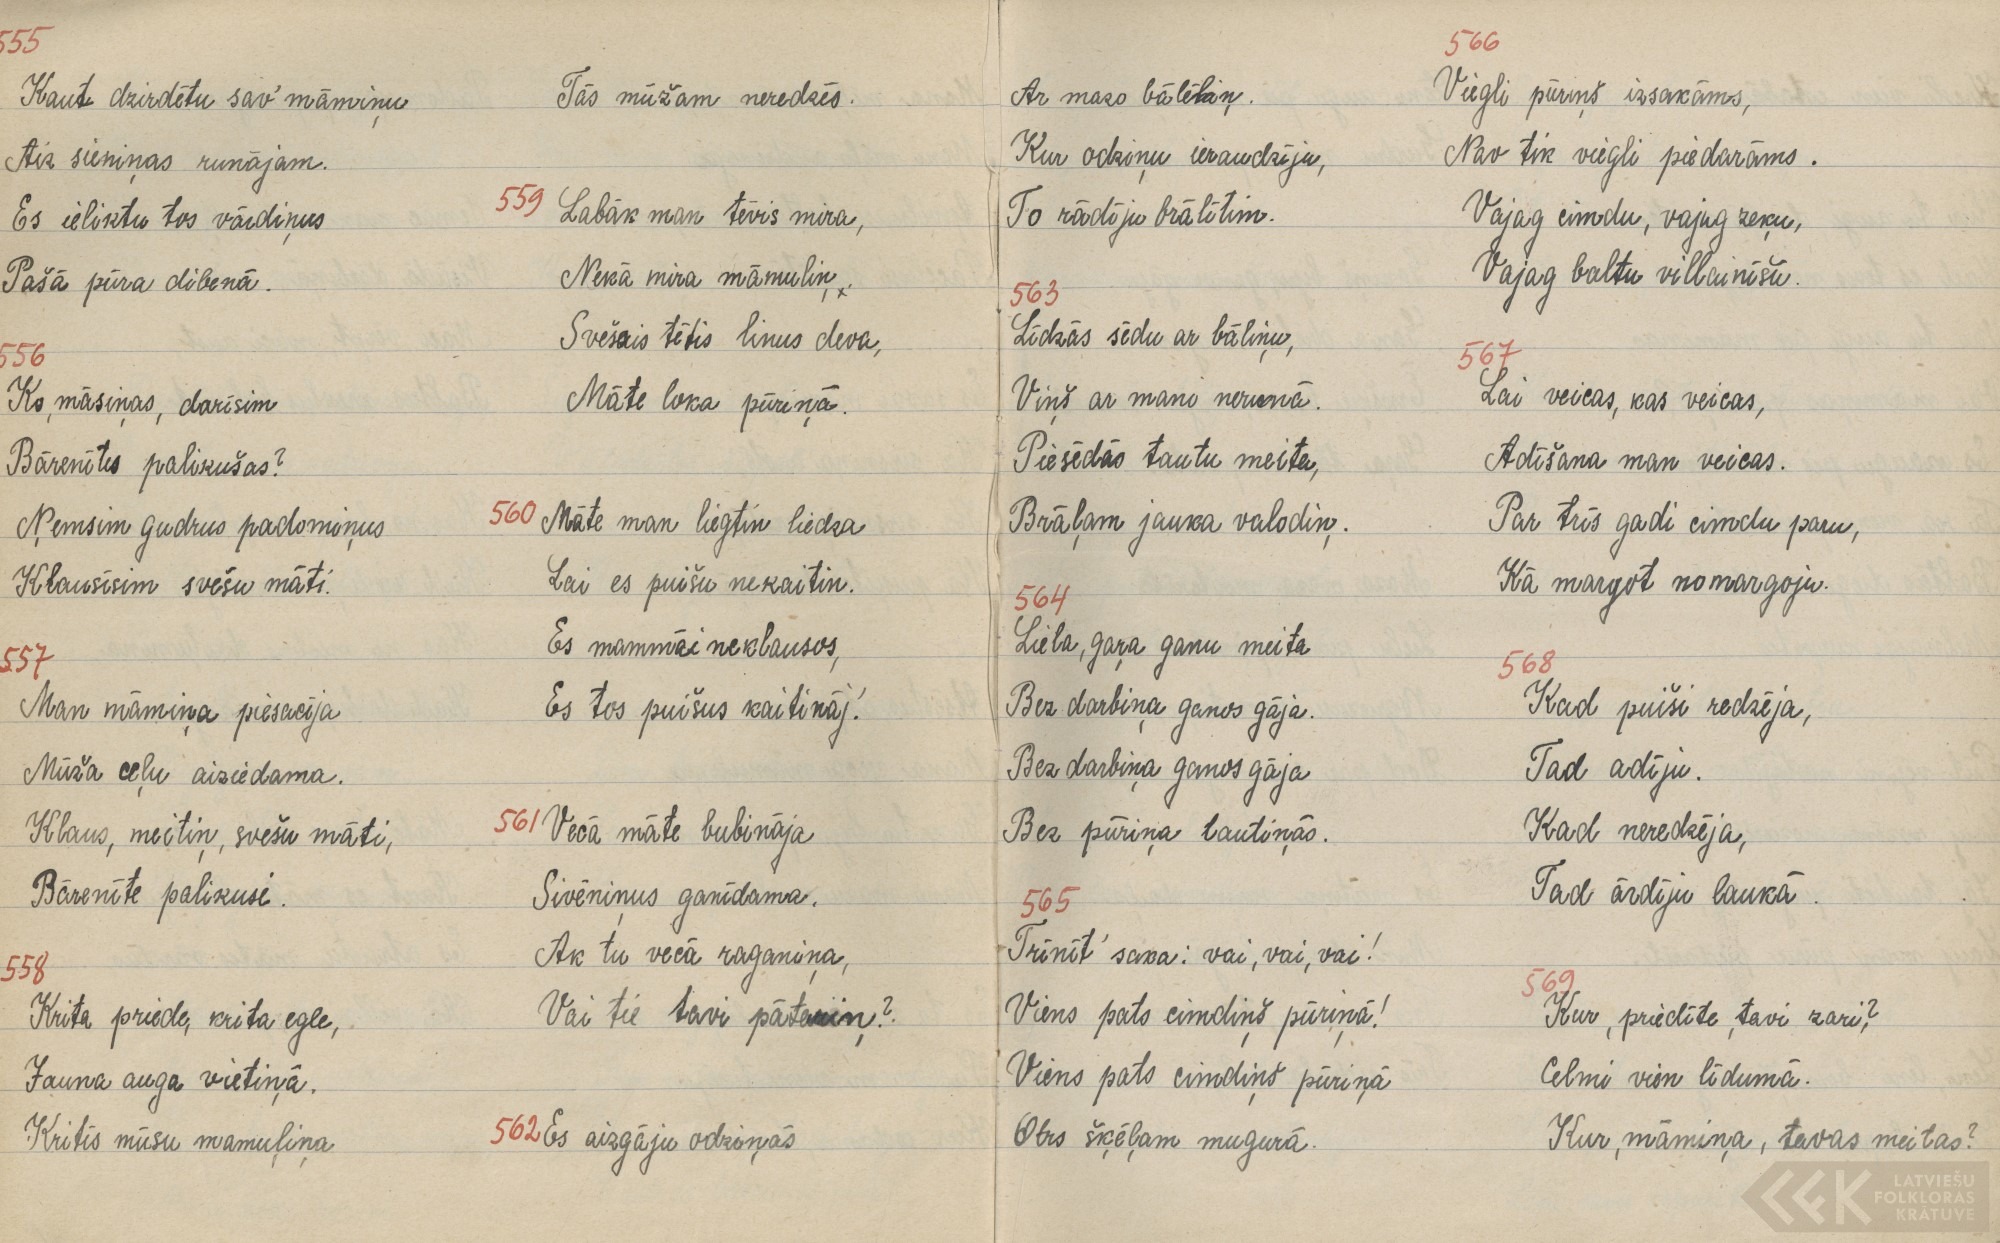 555
Kaut dzirdētu sav' māmiņu
Aiz sieniņas runājam.
Es ieliktu tos vārdiņus
Pašā pūra dibenā.
556
Ko, māsiņas, darīsim
Bārenītes palikušas?
Ņemsim gudrus padomiņus
Klausīsim svešu māti.
557
Man māmiņa piesacīja
Mūža ceļu aiziedama.
Klaus, meitiņ, svešu māti,
Bārenīte palikusi.
558
Krita priede, krita egle,
Jauna auga vietiņā.
Kritīs mūsu mamuļiņa
Tās mūžam neredzēs.
559 Labāk man tēvis mira,
Nekā mira māmuliņ.
Svešais tētis linus deva,
Māte loka pūriņā.
560 Māte man liegtin liedza
Lai es puišu nekaitin.
Es mammai neklausos,
Es tos puišus kaitināj!
561 Vecā māte bubināja
Sivēniņus ganīdama.
Ak tu vecā raganiņa,
Vai tie tavi pātariņ?
562 Es aizgāju odziņās
Ar mazo bālēliņ.
Kur odziņu ieraudzīju,
To rādīju brālītim.
563
Līdzās sēdu ar bāliņu,
Viņš ar mani nerunā.
Piesēdās tautu meita,
Brāļam jauka valodiņ.
564
Liela, gaŗa ganu meita
Bez darbiņa ganos gāja.
Bez darbiņa ganos gāja
Bez pūriņa tautiņās.
565
Trīnīt' saka: vai, vai, vai!
Viens pats cimdiņš pūriņā!
Viens pats cimdiņš pūriņā
Otrs šķēļam mugurā.
566
Viegli pūriņš izsakāms,
Nav tik viegli piedarāms.
Vajag cimdu, vajag zeķu,
Vajag baltu villainīšu.
567
Lai veicas, kas veicas,
Adīšana man veicas.
Par trīs gadi cimdu paru,
Kā margot nomargoju.
568
Kad puiši redzēja,
Tad adīju.
Kad neredzēja,
Tad ārdīju laukā.
569
Kur, priedīte, tavi zari?
Celmi vien līdumā.
Kur, māmiņa, tavas meitas?
LATVIEŠU
FOLKLORAS
KRĀTUVE